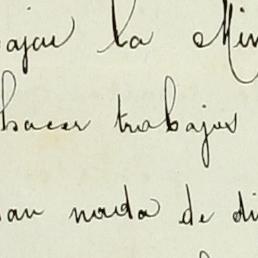 ajar la Min
hacer trabajos
an nada de di